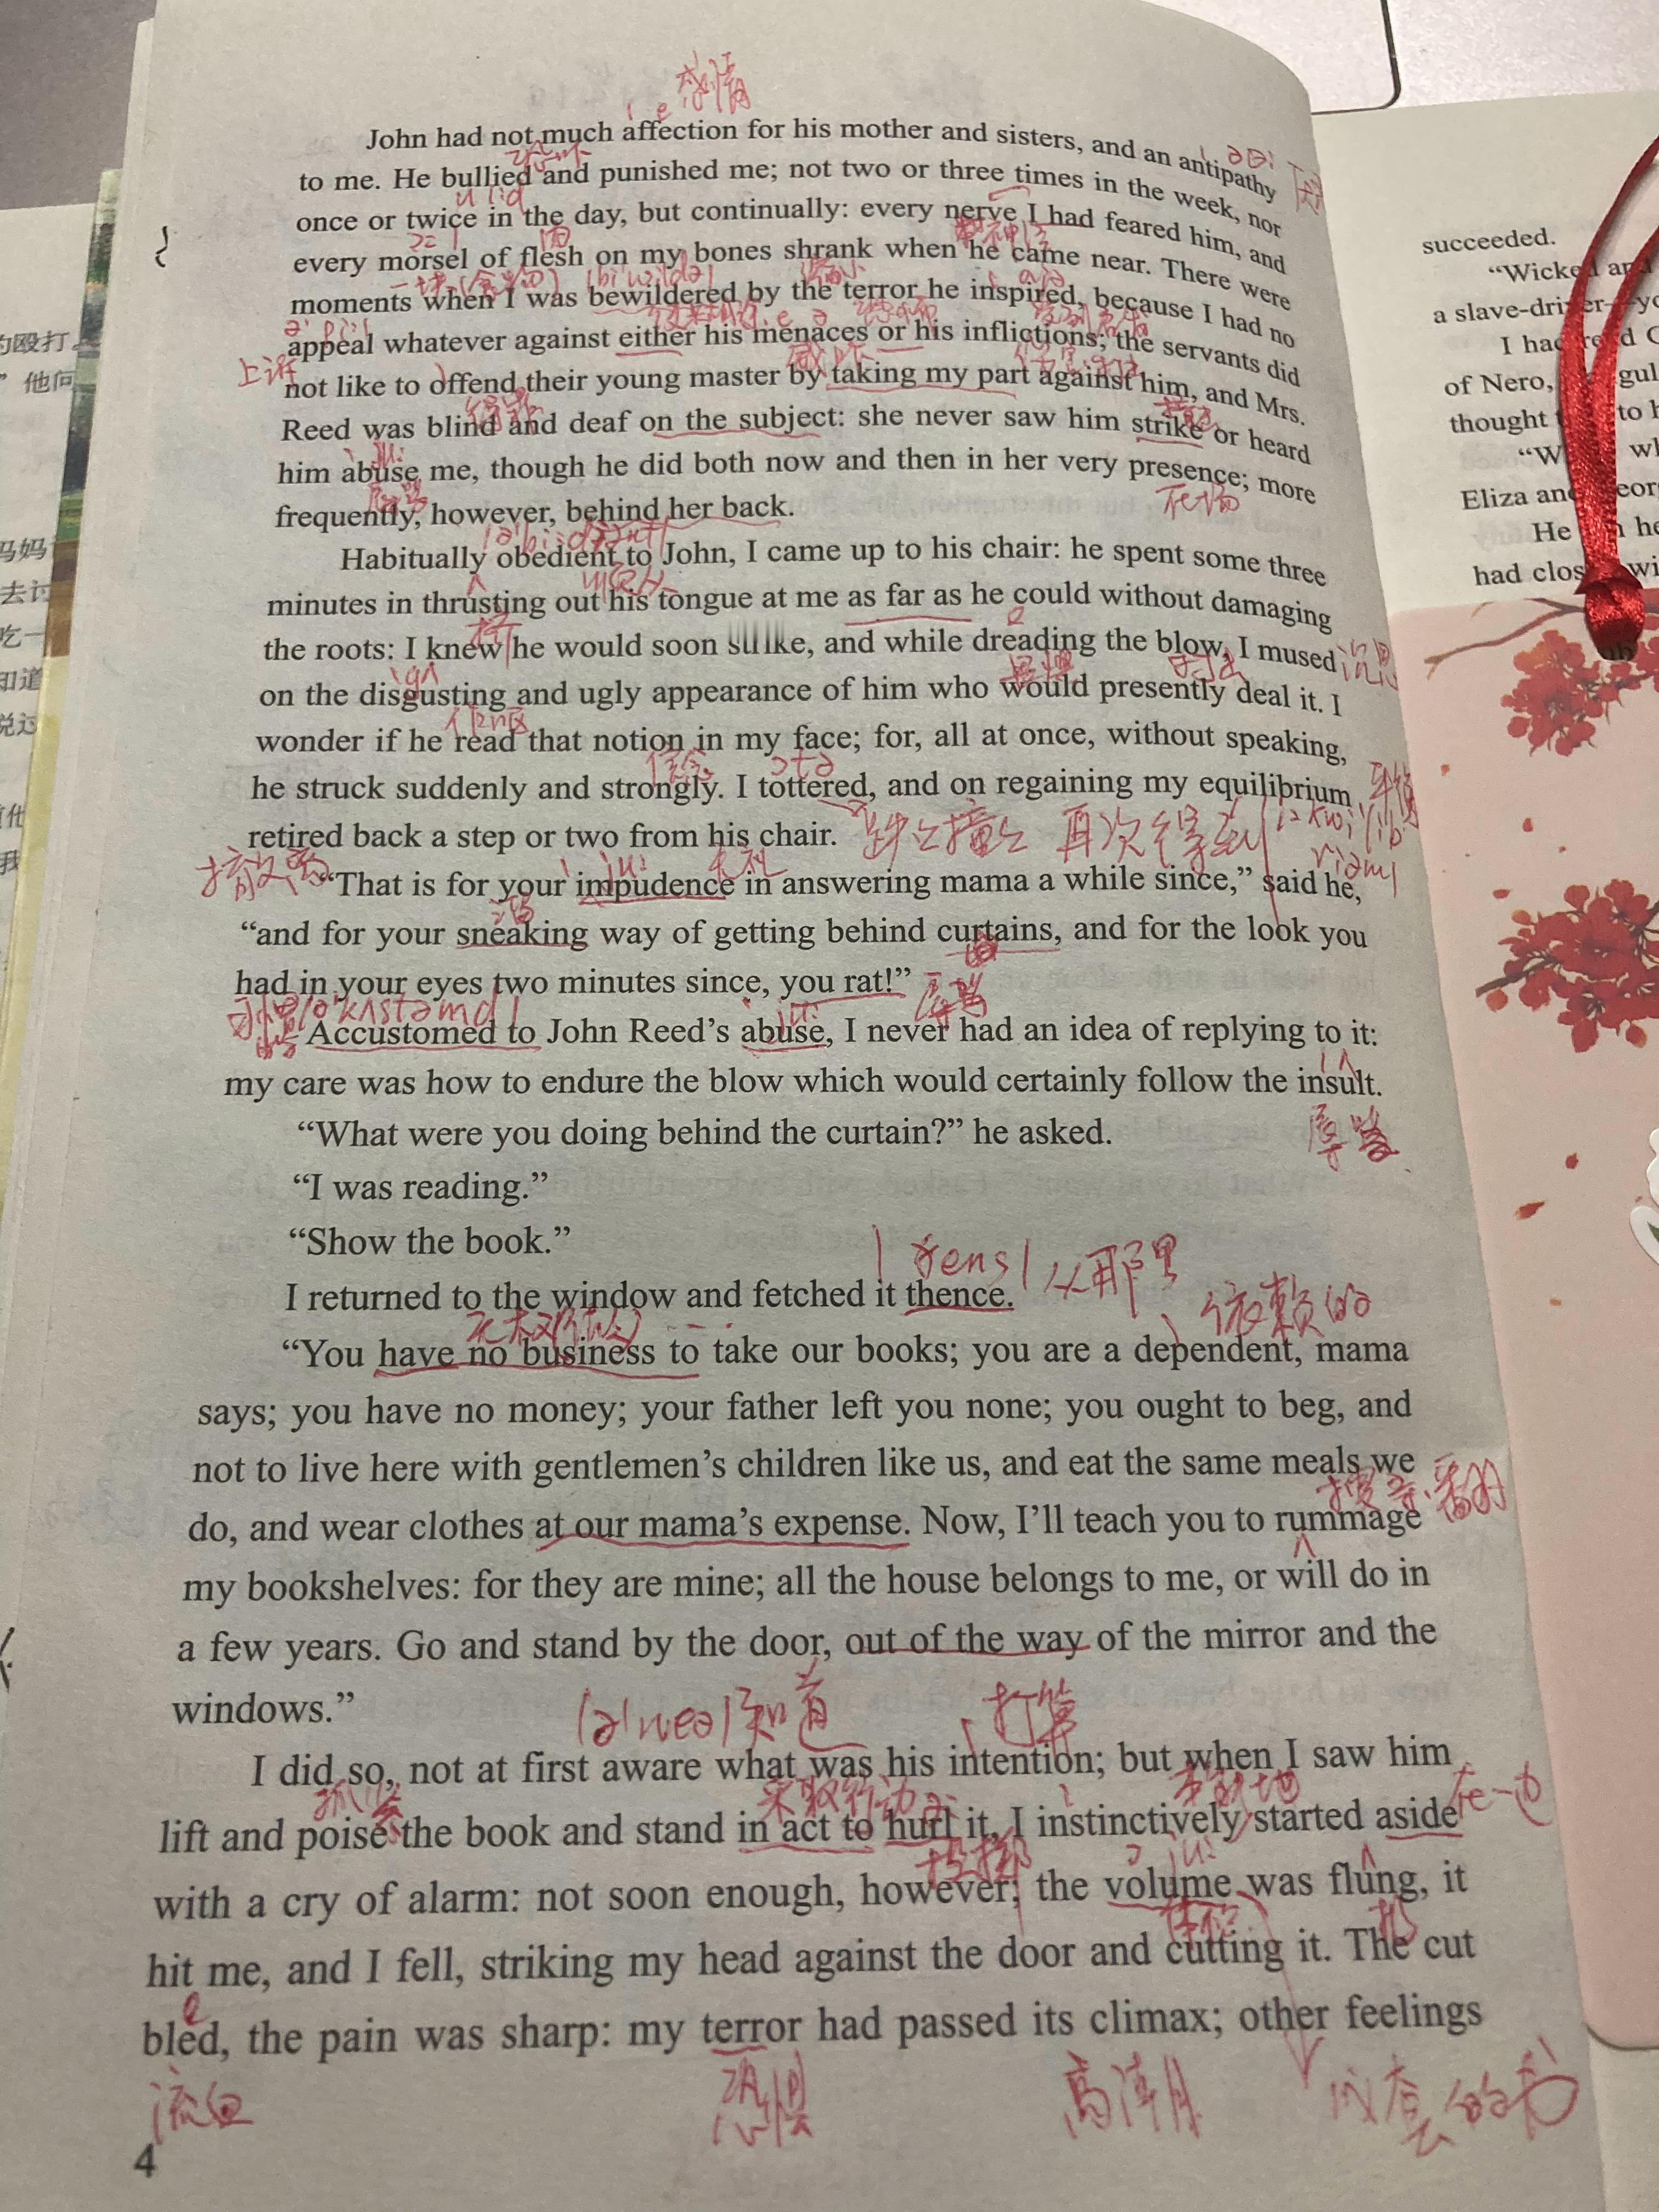 感情
John had not much affection for his mother and sisters, and an antipathy
恐吓
to me. He bullied and punished me; not two or three times in the week, nor
once or twice in the day, but continually: every nerve I had feared him, and
神经
every morsel of flesh on my bones shrank when he came near. There were
moments when I was bewildered by the terror he inspired, because I had no
appeal whatever against either his menaces or his inflictions; the servants did
上诉
威吓
not like to offend their young master by taking my part against him, and Mrs.
Reed was blind and deaf on the subject: she never saw him strike or heard
him abuse me, though he did both now and then in her very presence; more
辱骂
在场
frequently, however, behind her back.
Habitually obedient to John, I came up to his chair: he spent some three
minutes in thrusting out his tongue at me as far as he could without damaging
the roots: I knew he would soon strike, and while dreading the blow, I mused
沉思
on the disgusting and ugly appearance of him who would presently deal it. I
wonder if he read that notion in my face; for, all at once, without speaking,
he struck suddenly and strongly. I tottered, and on regaining my equilibrium
平衡
retired back a step or two from his chair.
再次得到
“That is for your impudence in answering mama a while since,” said he,
“and for your sneaking way of getting behind curtains, and for the look you
had in your eyes two minutes since, you rat!”
辱骂
习惯
Accustomed to John Reed’s abuse, I never had an idea of replying to it:
my care was how to endure the blow which would certainly follow the insult.
辱骂
“What were you doing behind the curtain?” he asked.
“I was reading.”
“Show the book.”
|ðens| 从那里
I returned to the window and fetched it thence.
依赖的
“You have no business to take our books; you are a dependent, mama
says; you have no money; your father left you none; you ought to beg, and
not to live here with gentlemen’s children like us, and eat the same meals we
搜寻、翻找
do, and wear clothes at our mama’s expense. Now, I’ll teach you to rummage
my bookshelves: for they are mine; all the house belongs to me, or will do in
a few years. Go and stand by the door, out of the way of the mirror and the
windows.”
|ə'weə| 知道
打算
I did so, not at first aware what was his intention; but when I saw him
抓紧
采取行动
本能地
在一边
lift and poise the book and stand in act to hurl it, I instinctively started aside
投掷
with a cry of alarm: not soon enough, however; the volume was flung, it
扔
hit me, and I fell, striking my head against the door and cutting it. The cut
bled, the pain was sharp: my terror had passed its climax; other feelings
流血
恐惧
高潮
成套的书
4
succeeded.
“Wicked and
a slave-driver
I had
of Nero,
thought
to
Eliza and
He
had
的殴打
他向
妈妈
知道